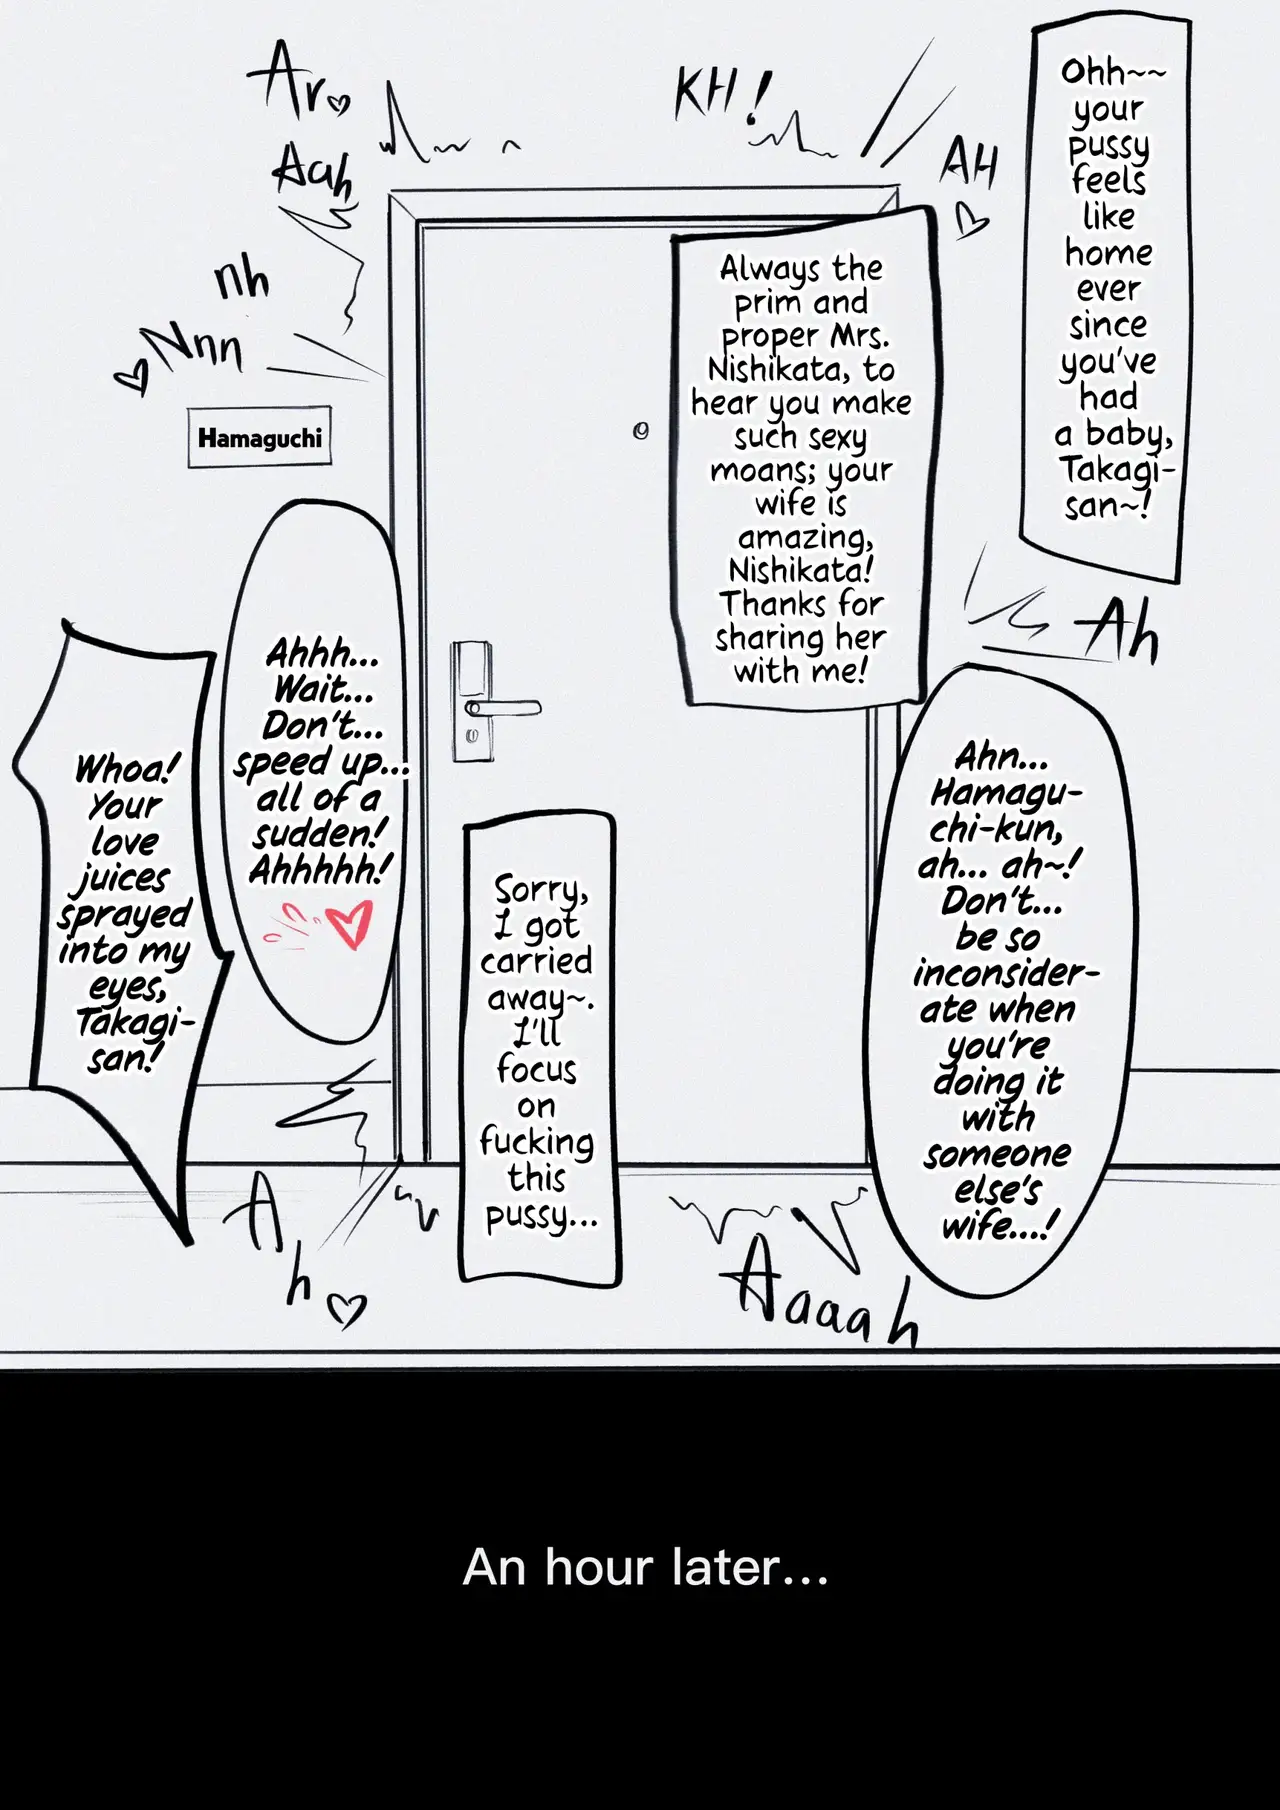 Ohh~~
your
pussy
feels
like
home
ever
since
you've
had
a baby,
Takagi-
san~!
Ar♡
Aah
KH!
AH
♡
nh
Nnn
♡
Always the
prim and
proper Mrs.
Nishikata, to
hear you make
such sexy
moans; your
wife is
amazing,
Nishikata!
Thanks for
sharing her
with me!
Hamaguchi
Ah
Ahn...
Hamagu-
chi-kun,
ah... ah~!
Don't...
be so
inconsider-
ate when
you're
doing it
with
someone
else's
wife...!
Sorry,
I got
carried
away~.
I'll
focus
on
fucking
this
pussy...
Ahhh...
Wait...
Don't...
speed up...
all of a
sudden!
Ahhhhh!
Whoa!
Your
love
juices
sprayed
into my
eyes,
Takagi-
san!
Ah♡
Aaaah
An hour later...